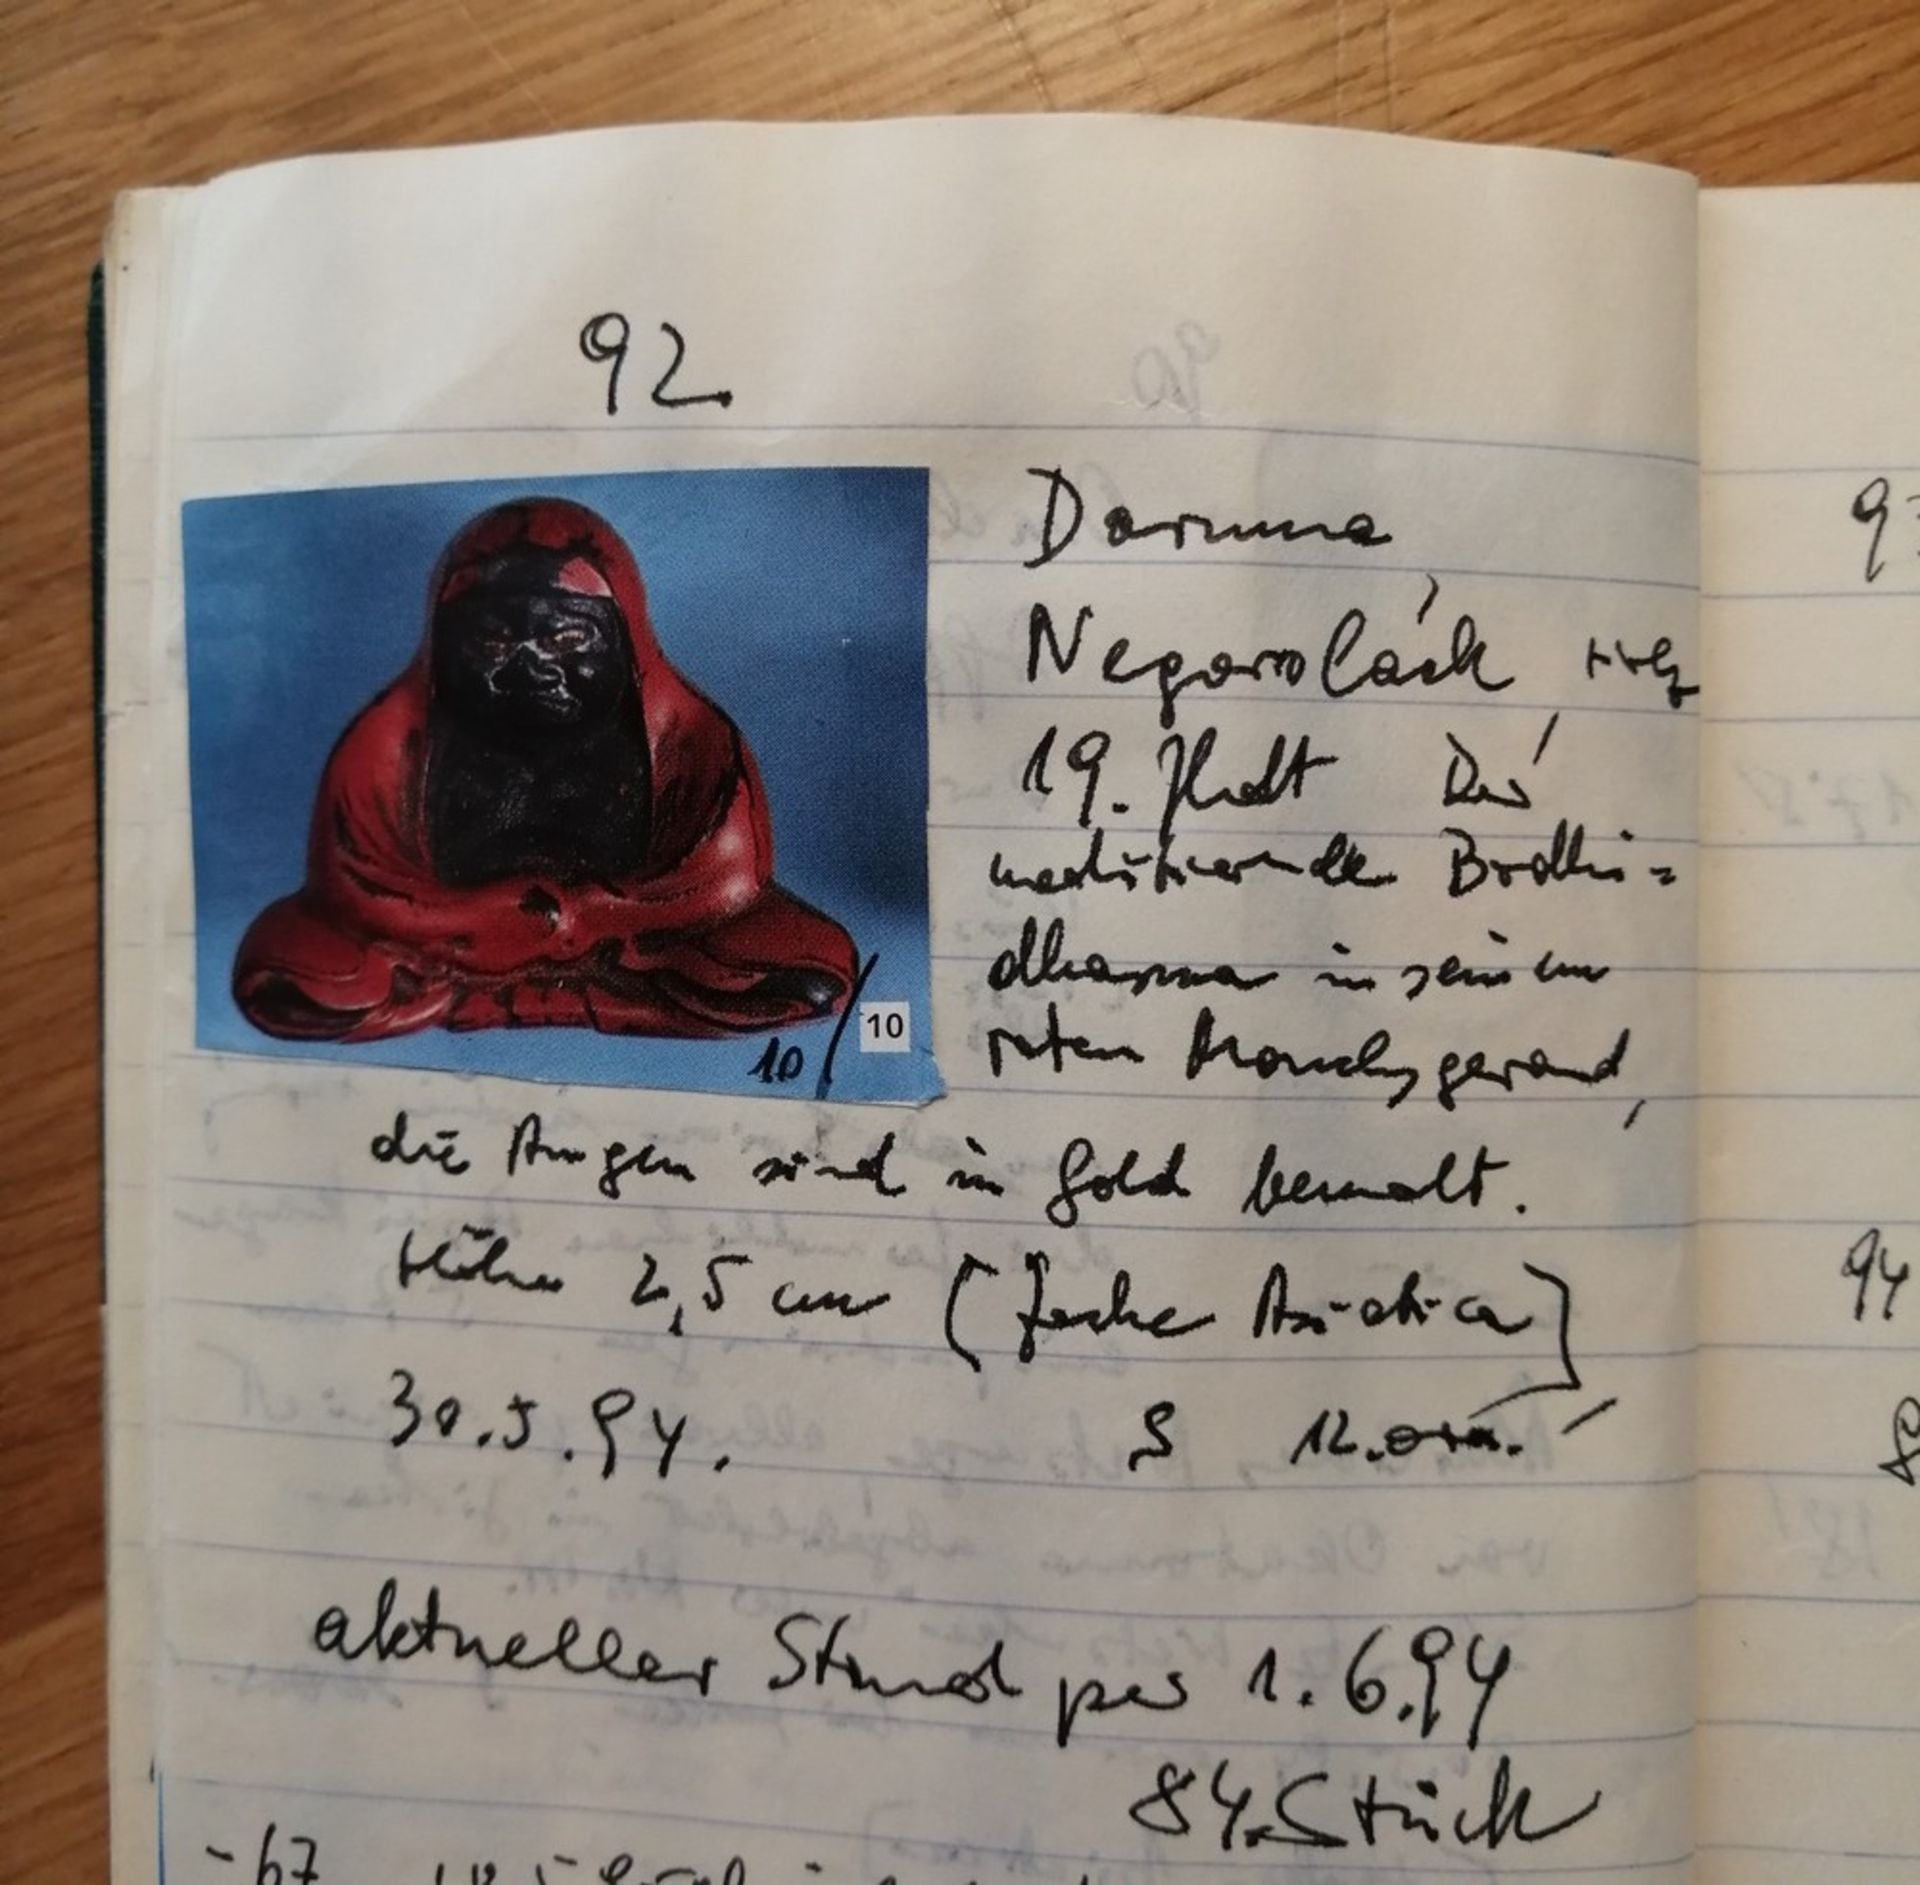 92
Daruma,
Negorolack, Holz
19. Jhdt Der
meditierende Bodhi=
dharma in seinem
roten Mönchsgewand,
10/ 10
die Augen sind in Gold bemalt.
Höhe 2,5 cm (Asiatica)
30.5.94. S 12.000.-
aktueller Stand per 1.6.94
84 Stück
-67
94